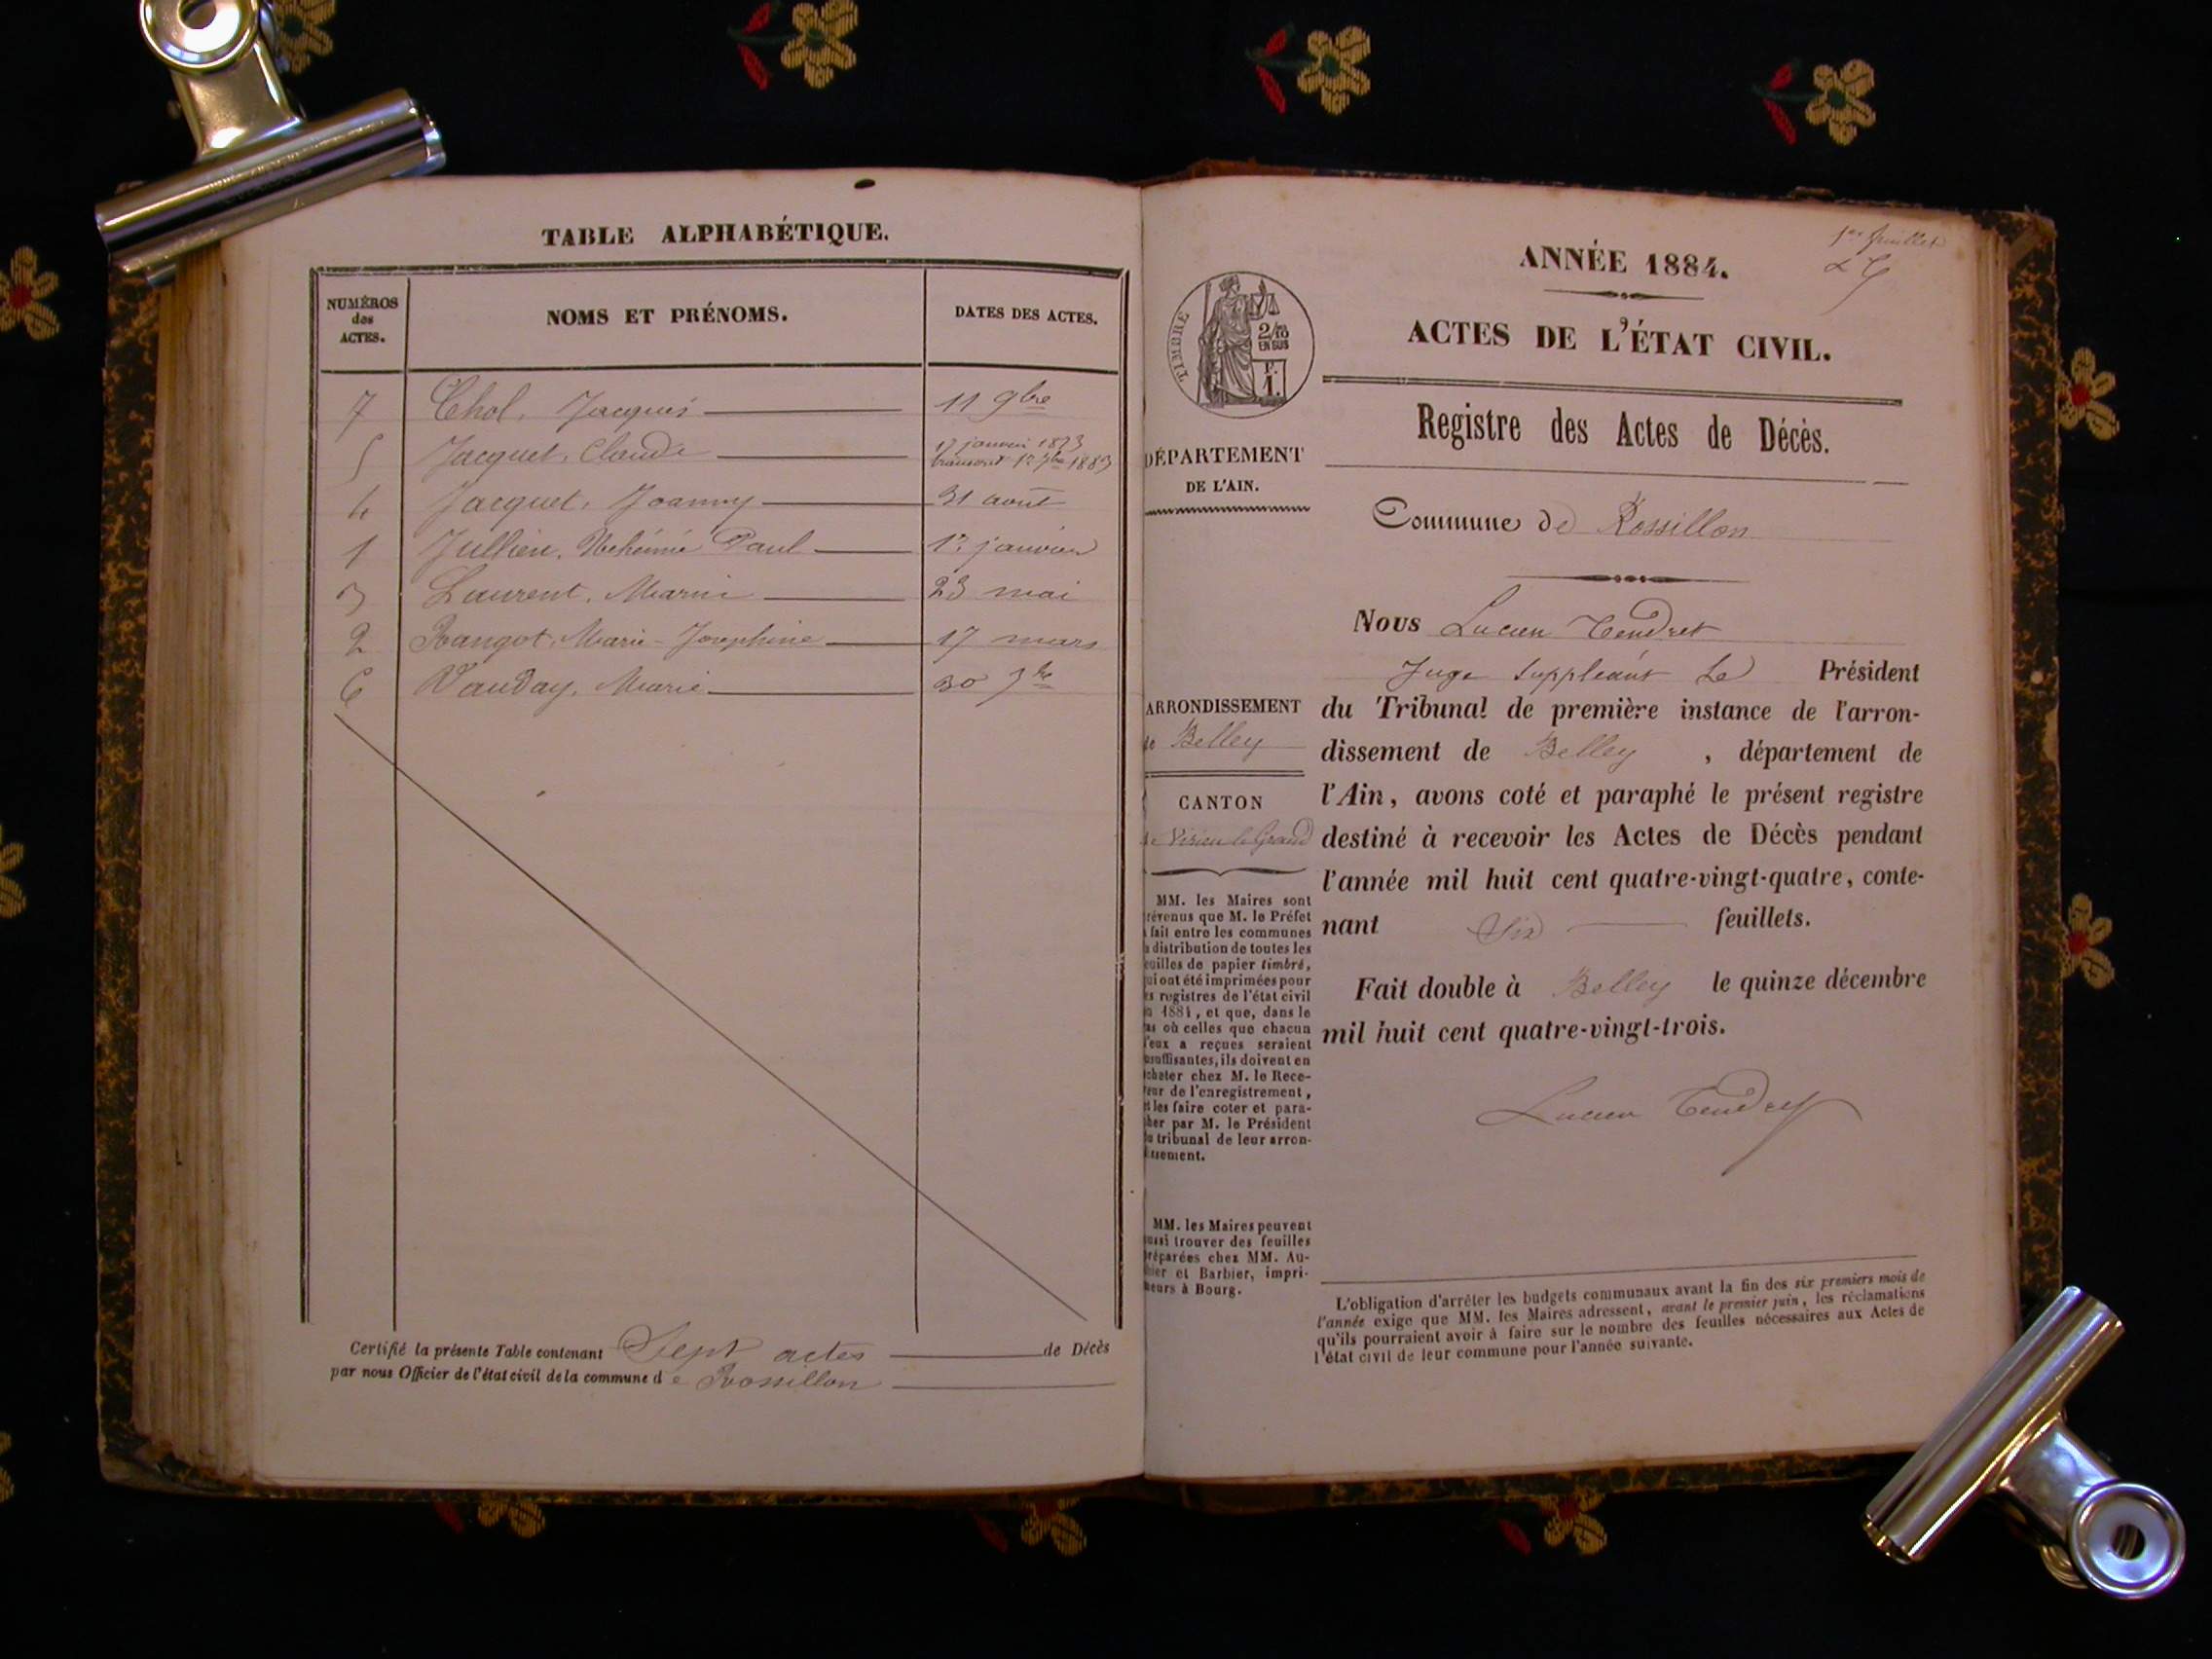 TABLE ALPHABÉTIQUE.
NUMÉROS
des
ACTES.
NOMS ET PRÉNOMS.
DATES DES ACTES.
7 Chol, Jacques 11 9bre
5 Jacquet, Claude 17 janvier 1873
transcrit 1er 7bre 1883
4 Jacquet, Joanny 31 août
1 Jullien, Nehémie Paul 12 janvier
3 Laurent, Marie 23 mai
2 Rangot, Marie-Josephine 17 mars
6 Vauday, Marie 30 7bre
Certifié la présente Table contenant Sept actes de Décès
par nous Officier de l'état civil de la commune de Rossillon
1er feuillet
LT
ANNÉE 1884.
ACTES DE L'ÉTAT CIVIL.
Registre des Actes de Décès.
Commune de Rossillon
Nous Lucien Tendret
Juge suppléant Le Président
du Tribunal de première instance de l'arron-
dissement de Belley, département de
l'Ain, avons coté et paraphé le présent registre
destiné à recevoir les Actes de Décès pendant
l'année mil huit cent quatre-vingt-quatre, conte-
nant Six feuillets.
Fait double à Belley le quinze décembre
mil huit cent quatre-vingt-trois.
Lucien Tendret
L'obligation d'arrêter les budgets communaux avant la fin des six premiers mois de
l'année exige que MM. les Maires adressent, avant le premier juin, les réclamations
qu'ils pourraient avoir à faire sur le nombre des feuilles nécessaires aux Actes de
l'état civil de leur commune pour l'année suivante.
TIMBRE
2/10
EN SUS
F.
1.
DÉPARTEMENT
DE L'AIN.
ARRONDISSEMENT
de Belley
CANTON
de Virieu le Grand
MM. les Maires sont
révenus que M. le Préfet
fait entre les communes
distribution de toutes les
euilles de papier timbré,
ui ont été imprimées pour
es registres de l'état civil
1884, et que, dans le
as où celles que chacun
d'eux a reçues seraient
nsuffisantes, ils doivent en
cheter chez M. le Rece-
veur de l'enregistrement,
et les faire coter et para-
pher par M. le Président
du tribunal de leur arron-
dissement.
MM. les Maires peuvent
ussi trouver des feuilles
réparées chez MM. Au-
thier et Barbier, impri-
meurs à Bourg.